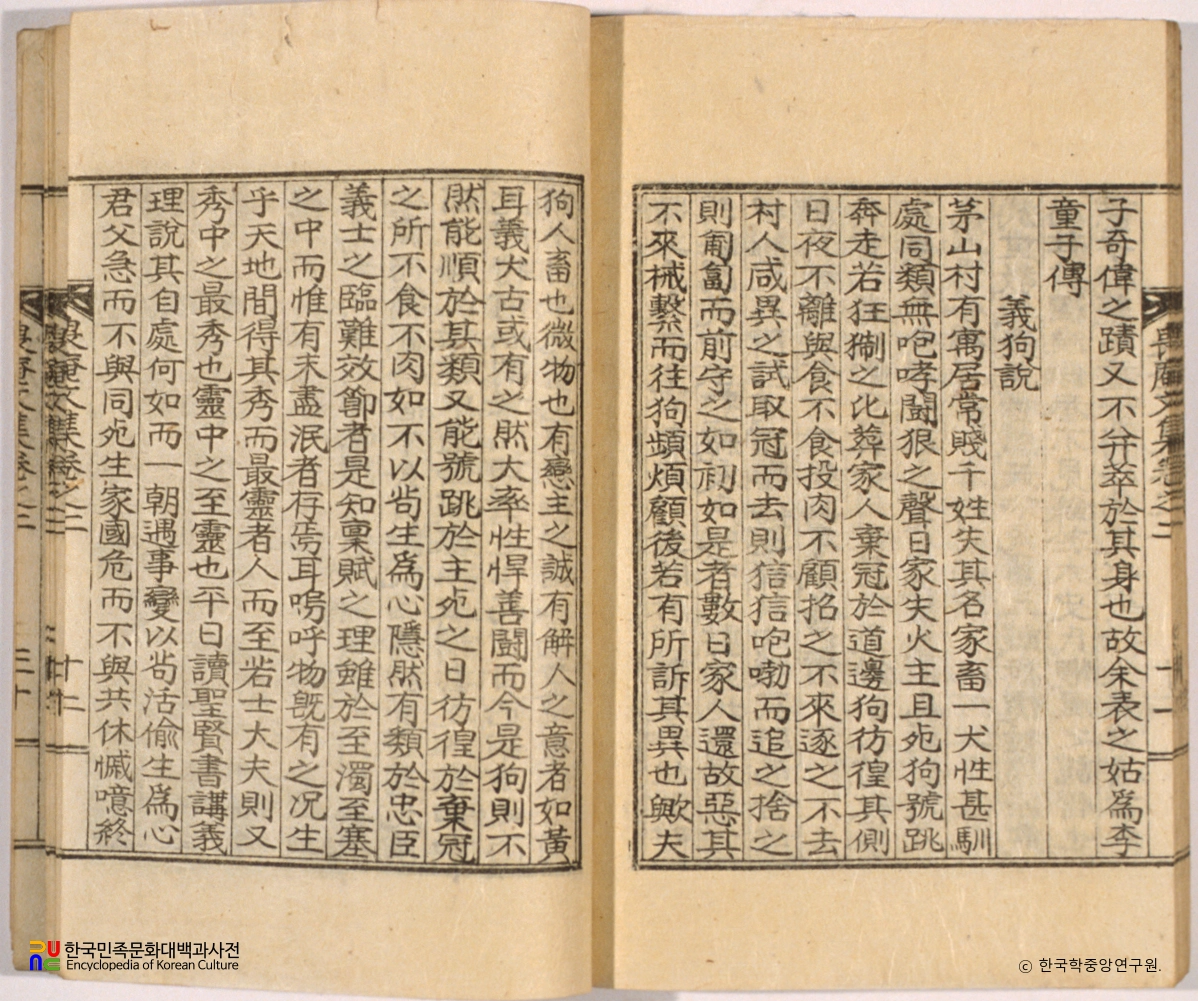 子奇偉之蹟又不弁萃於其身也故余表之姑爲李
童子傳
義狗說
茅山村有寓居常賤千姓失其名家畜一犬性甚馴
處同類無咆哮鬪狠之聲日家失火主且死狗號跳
奔走若狂猘之比葬家人棄冠於道邊狗彷徨其側
日夜不離與食不食投肉不顧招之不來逐之不去
村人咸異之試取冠而去則狺狺咆嘞而追之捨之
則匍匐而前守之如初如是者數日家人還故惡其
不來械繫而往狗顣煩顧後若有所訴其異也歟夫
狗人畜也微物也有戀主之誠有解人之意者如黃
耳義犬古或有之然大率性悍善鬪而今是狗則不
然能順於其類又能號跳於主死之日彷徨於棄冠
之所不食不肉如不以苟生爲心隱然有類於忠臣
義士之臨難效節者是知稟賦之理雖於至濁至塞
之中而惟有未盡泯者存焉耳嗚呼物旣有之况生
乎天地間得其秀而最靈者人而至若士大夫則又
秀中之最秀也靈中之至靈也平日讀聖賢書講義
理說其自處何如而一朝遇事變以苟活偷生爲心
君父急而不與同死生家國危而不與共休慽噫終
文集卷之二
十二
한국민족문화대백과사전
Encyclopedia of Korean Culture
ⓒ 한국학중앙연구원.